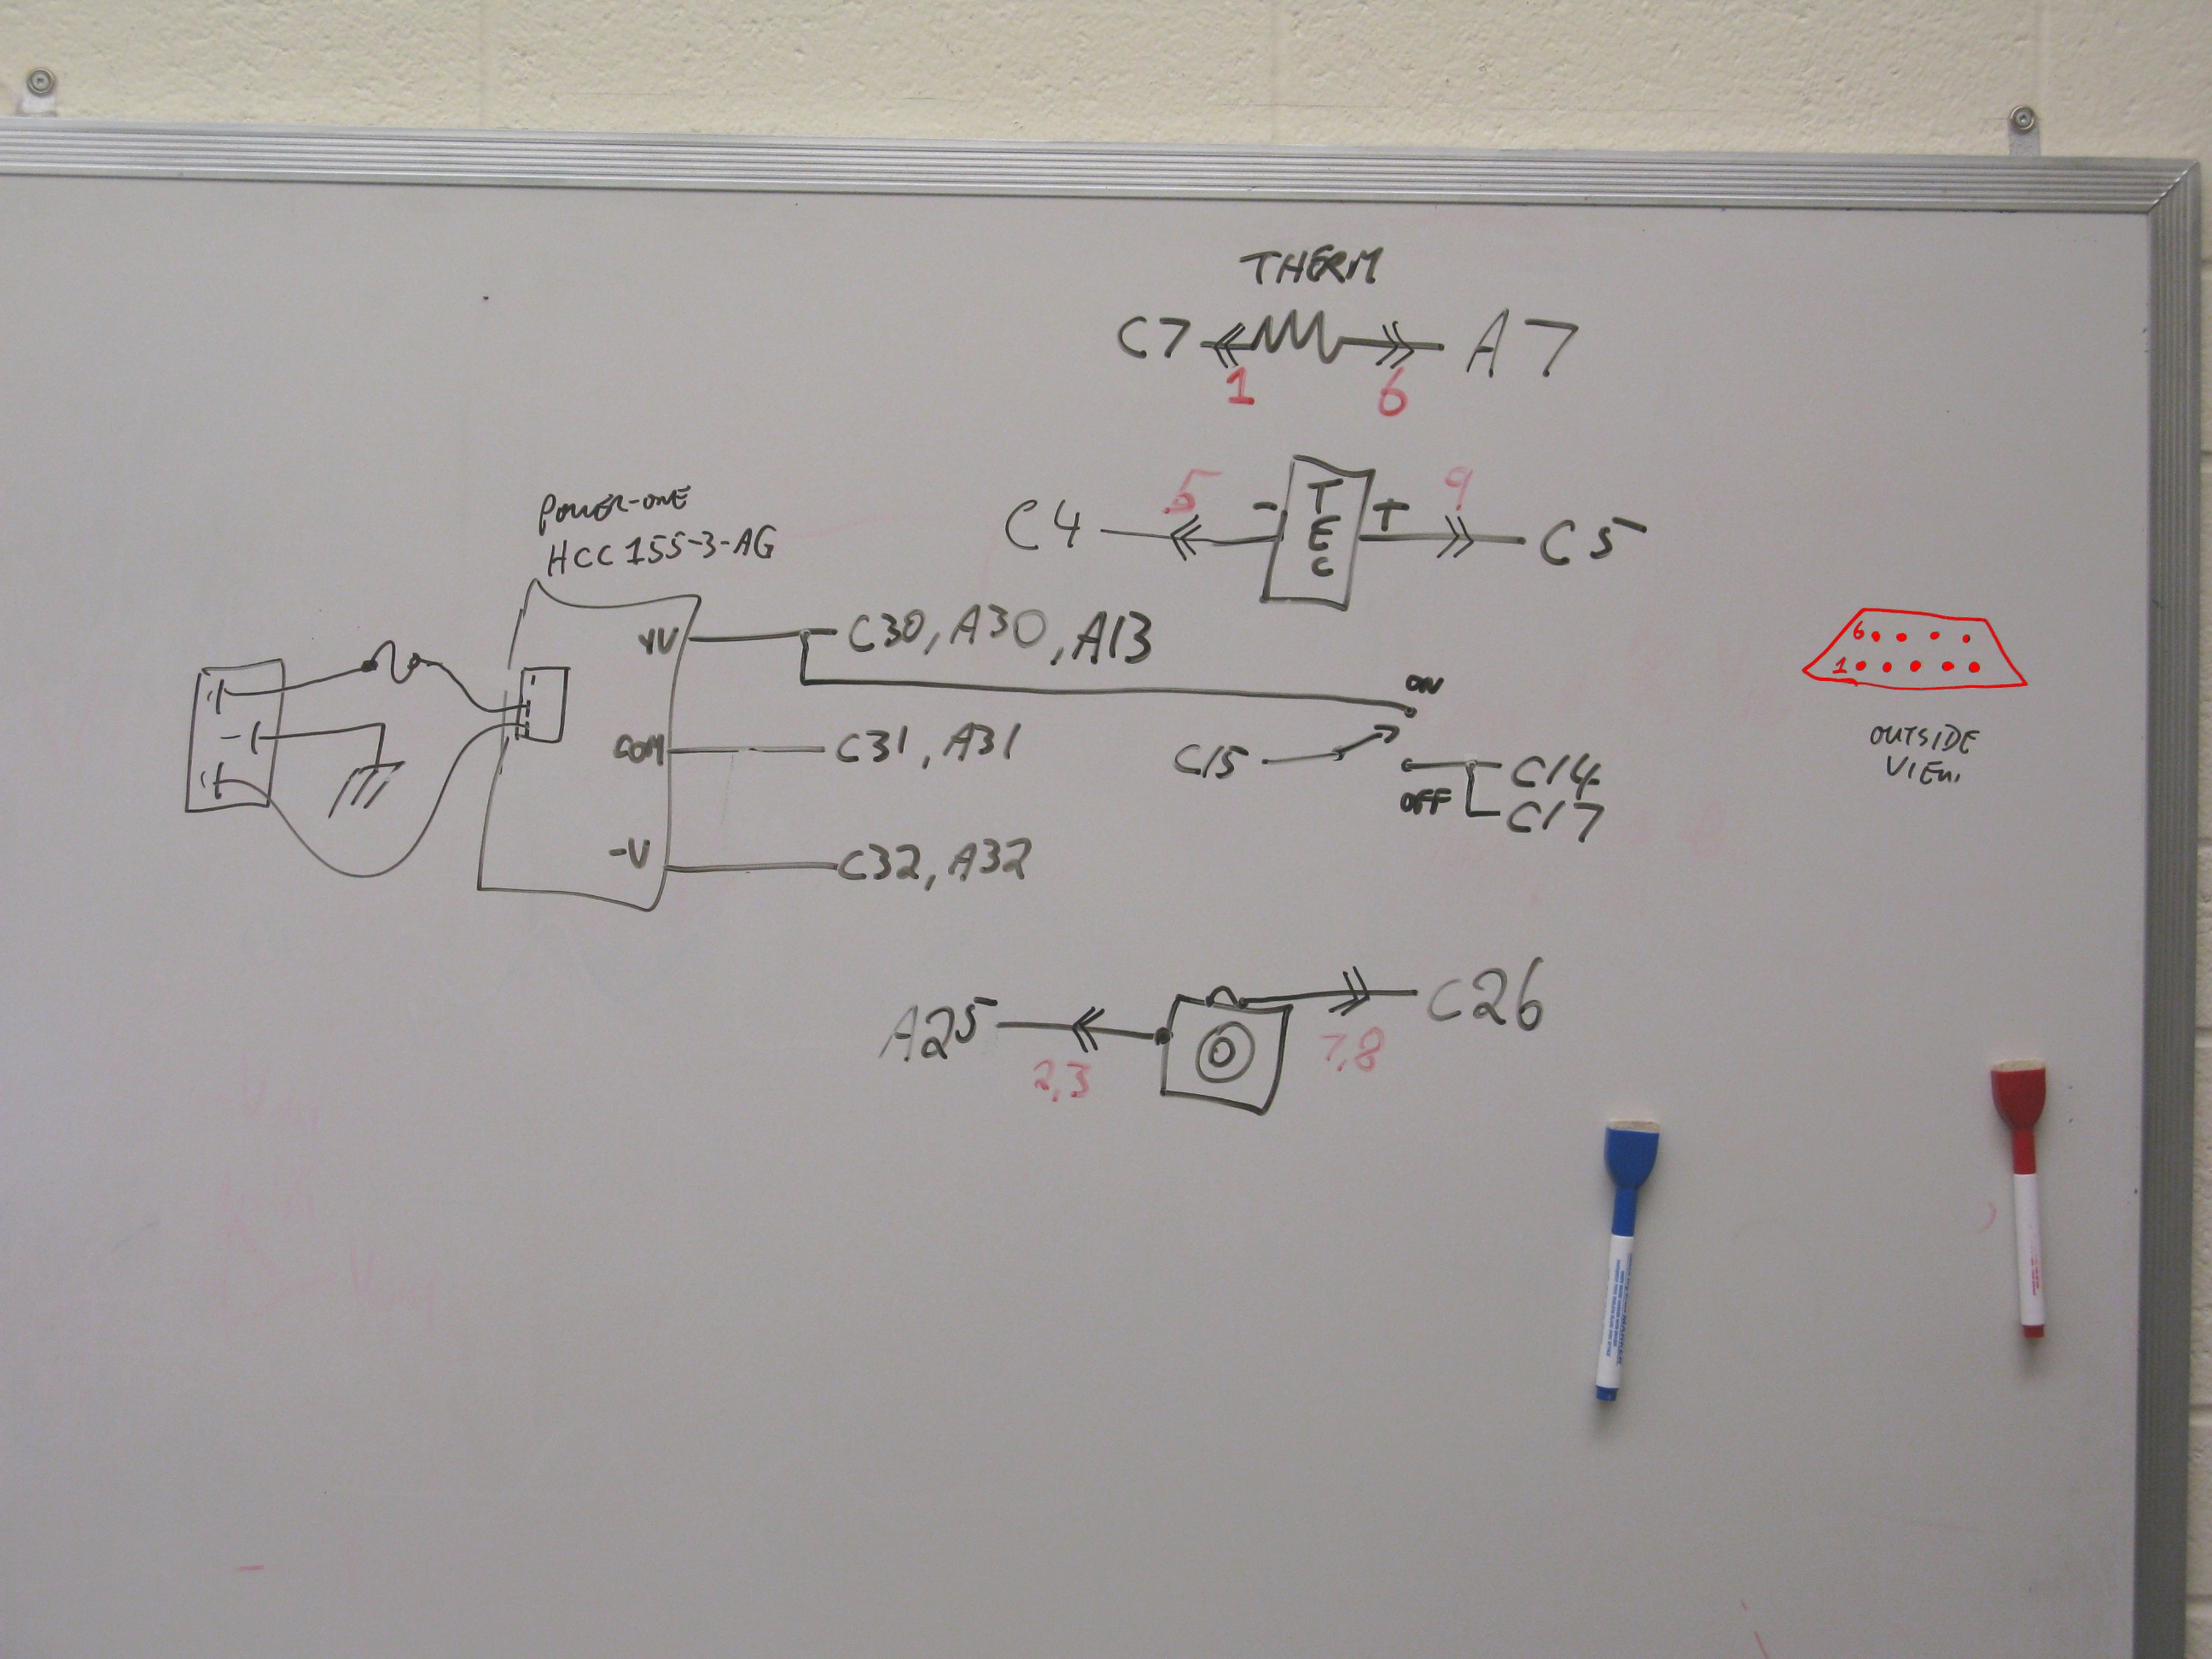 THERM
C7
A7
1
6
5
9
C4
-
TEC
+
C5
POWER-ONE
HCC155-3-AG
+V
C30, A30, A13
ON
COM
C31, A31
C15
C14
OFF
C17
-V
C32, A32
6
1
OUTSIDE
VIEW
A25
C26
2,3
7,8